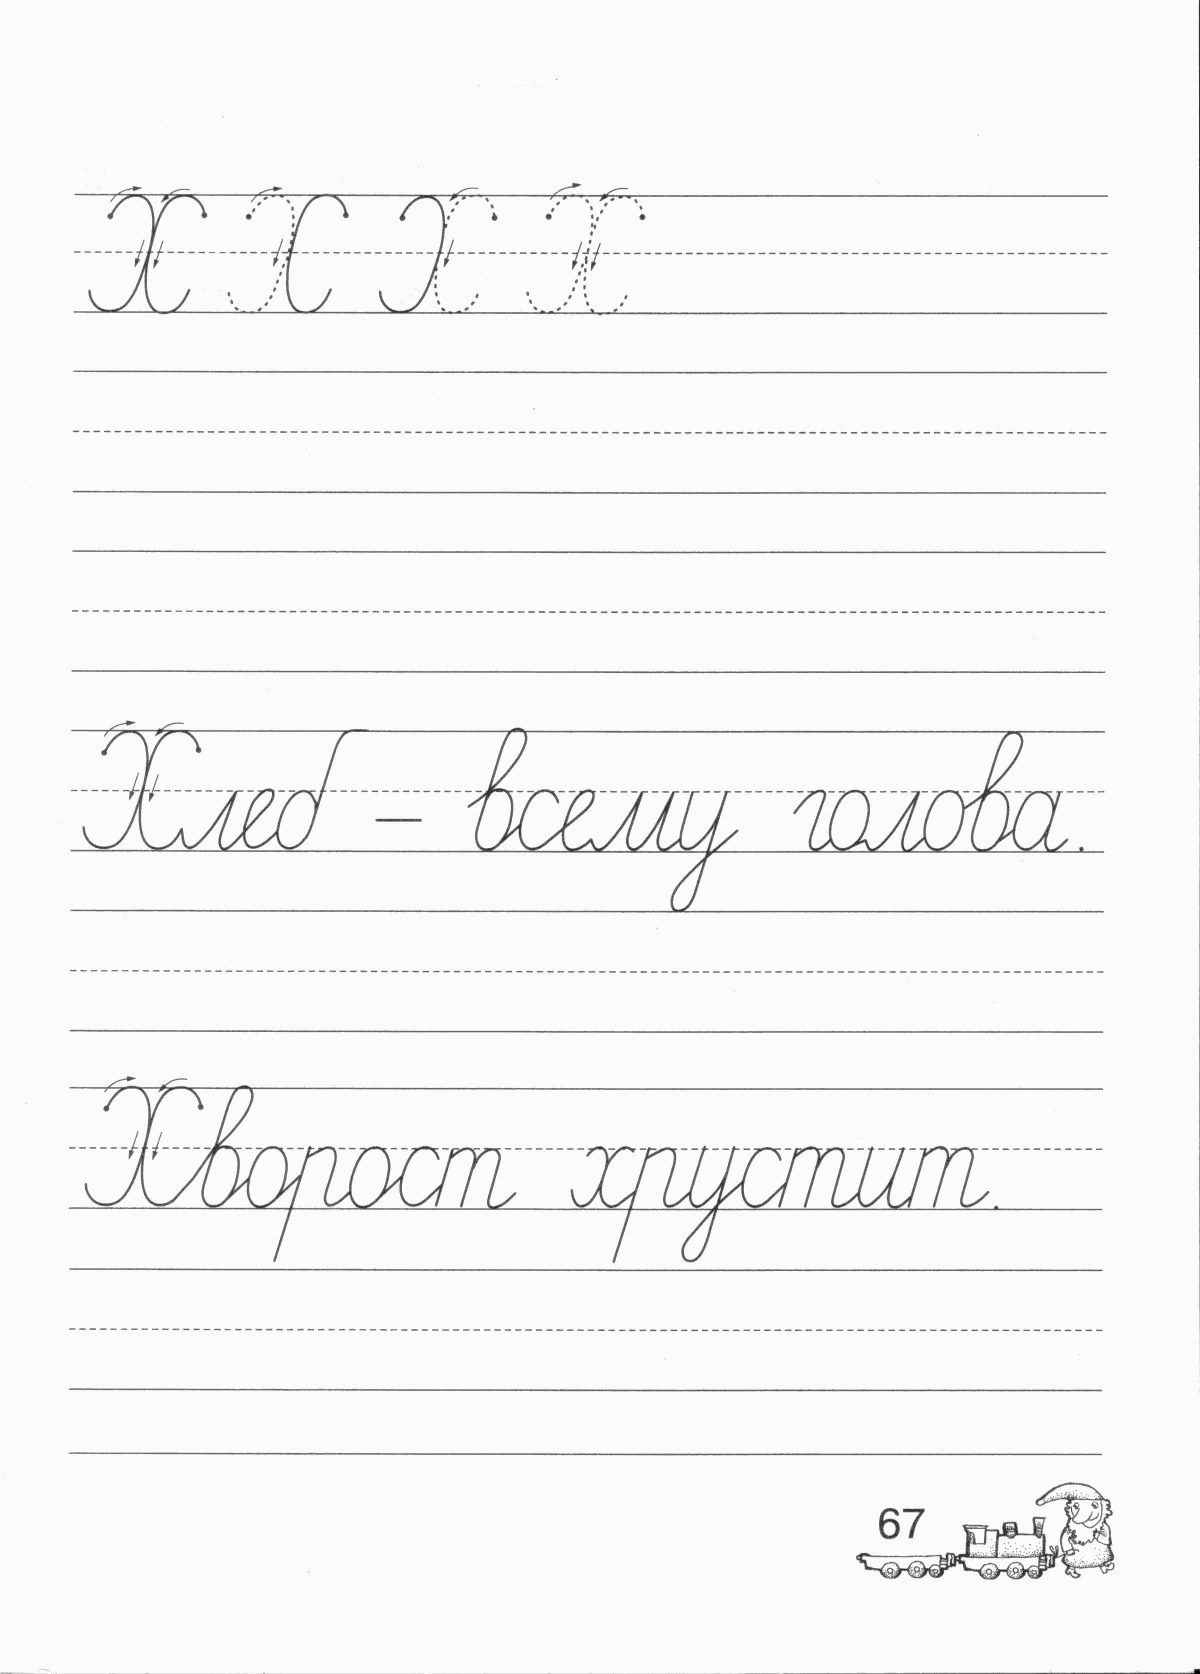 Х Х Х Х
Хлеб – всему голова.
Хворост хрустит.
67